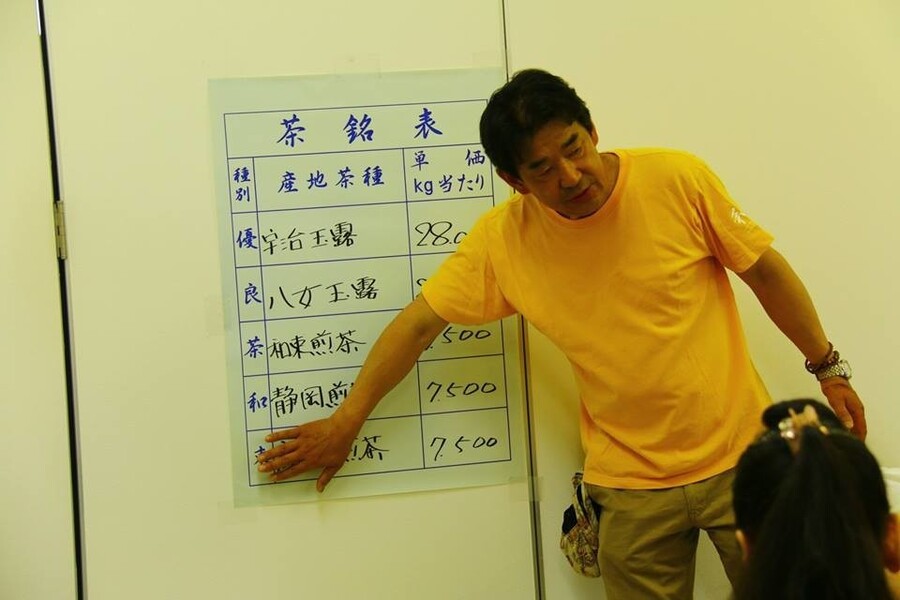 茶銘表
種別 産地茶種 単価 kg当たり
優 宇治玉露 28.0
良 八女玉露
茶 和束煎茶 .500
和 静岡煎 7.500
煎茶 7.500